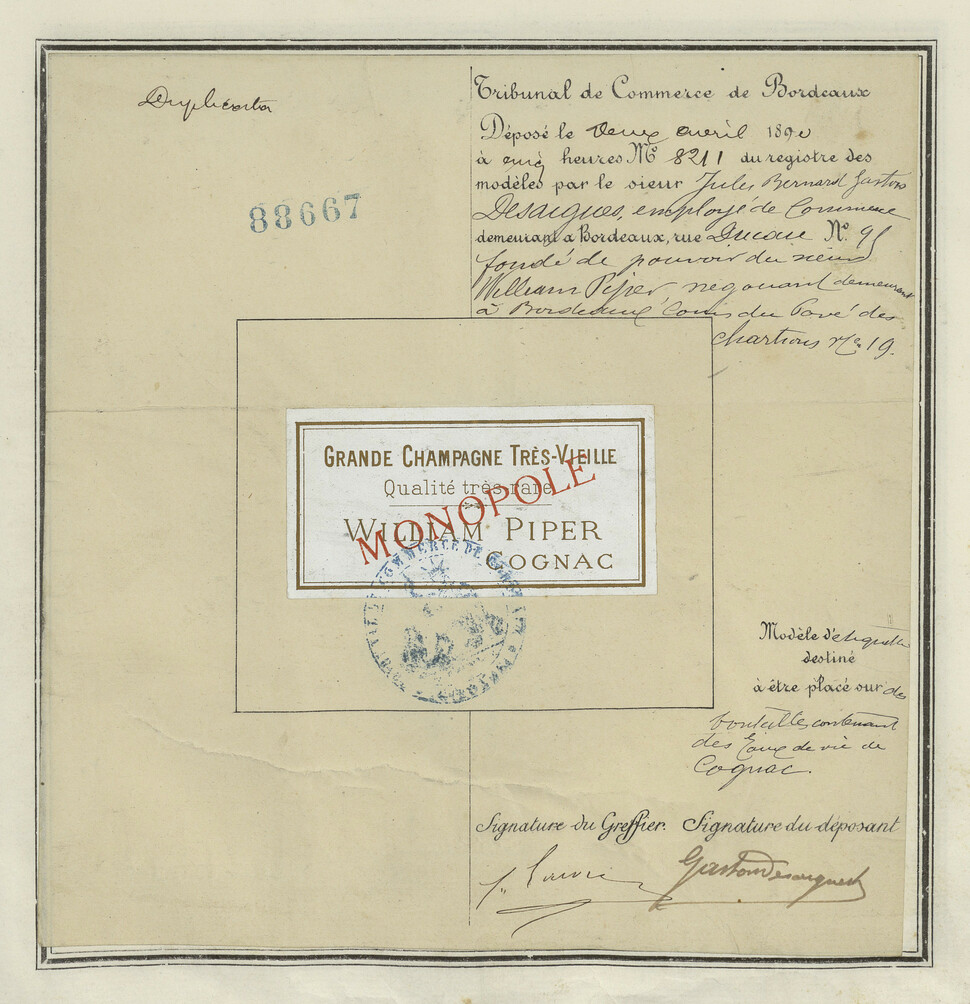 Duplicata
88667
Tribunal de Commerce de Bordeaux
Déposé le deux avril 1890
à cinq heures No 8211 du registre des
modèles par le sieur Jules Bernard Gaston
Desaigues, employé de Commerce
demeurant à Bordeaux, rue No. 95
fondé de pouvoir du sieur
William Piper, négociant demeurant
à Bordeaux Cours du Pavé des
Chartrons No. 19.
GRANDE CHAMPAGNE TRÈS-VIEILLE
Qualité très-rare
MONOPOLE
WILLIAM PIPER
COGNAC
COMMERCE DE
Modèle d'étiquette
destiné
à être placé sur des
bouteilles contenant
des Eaux de vie de
Cognac.
Signature du Greffier. Signature du déposant